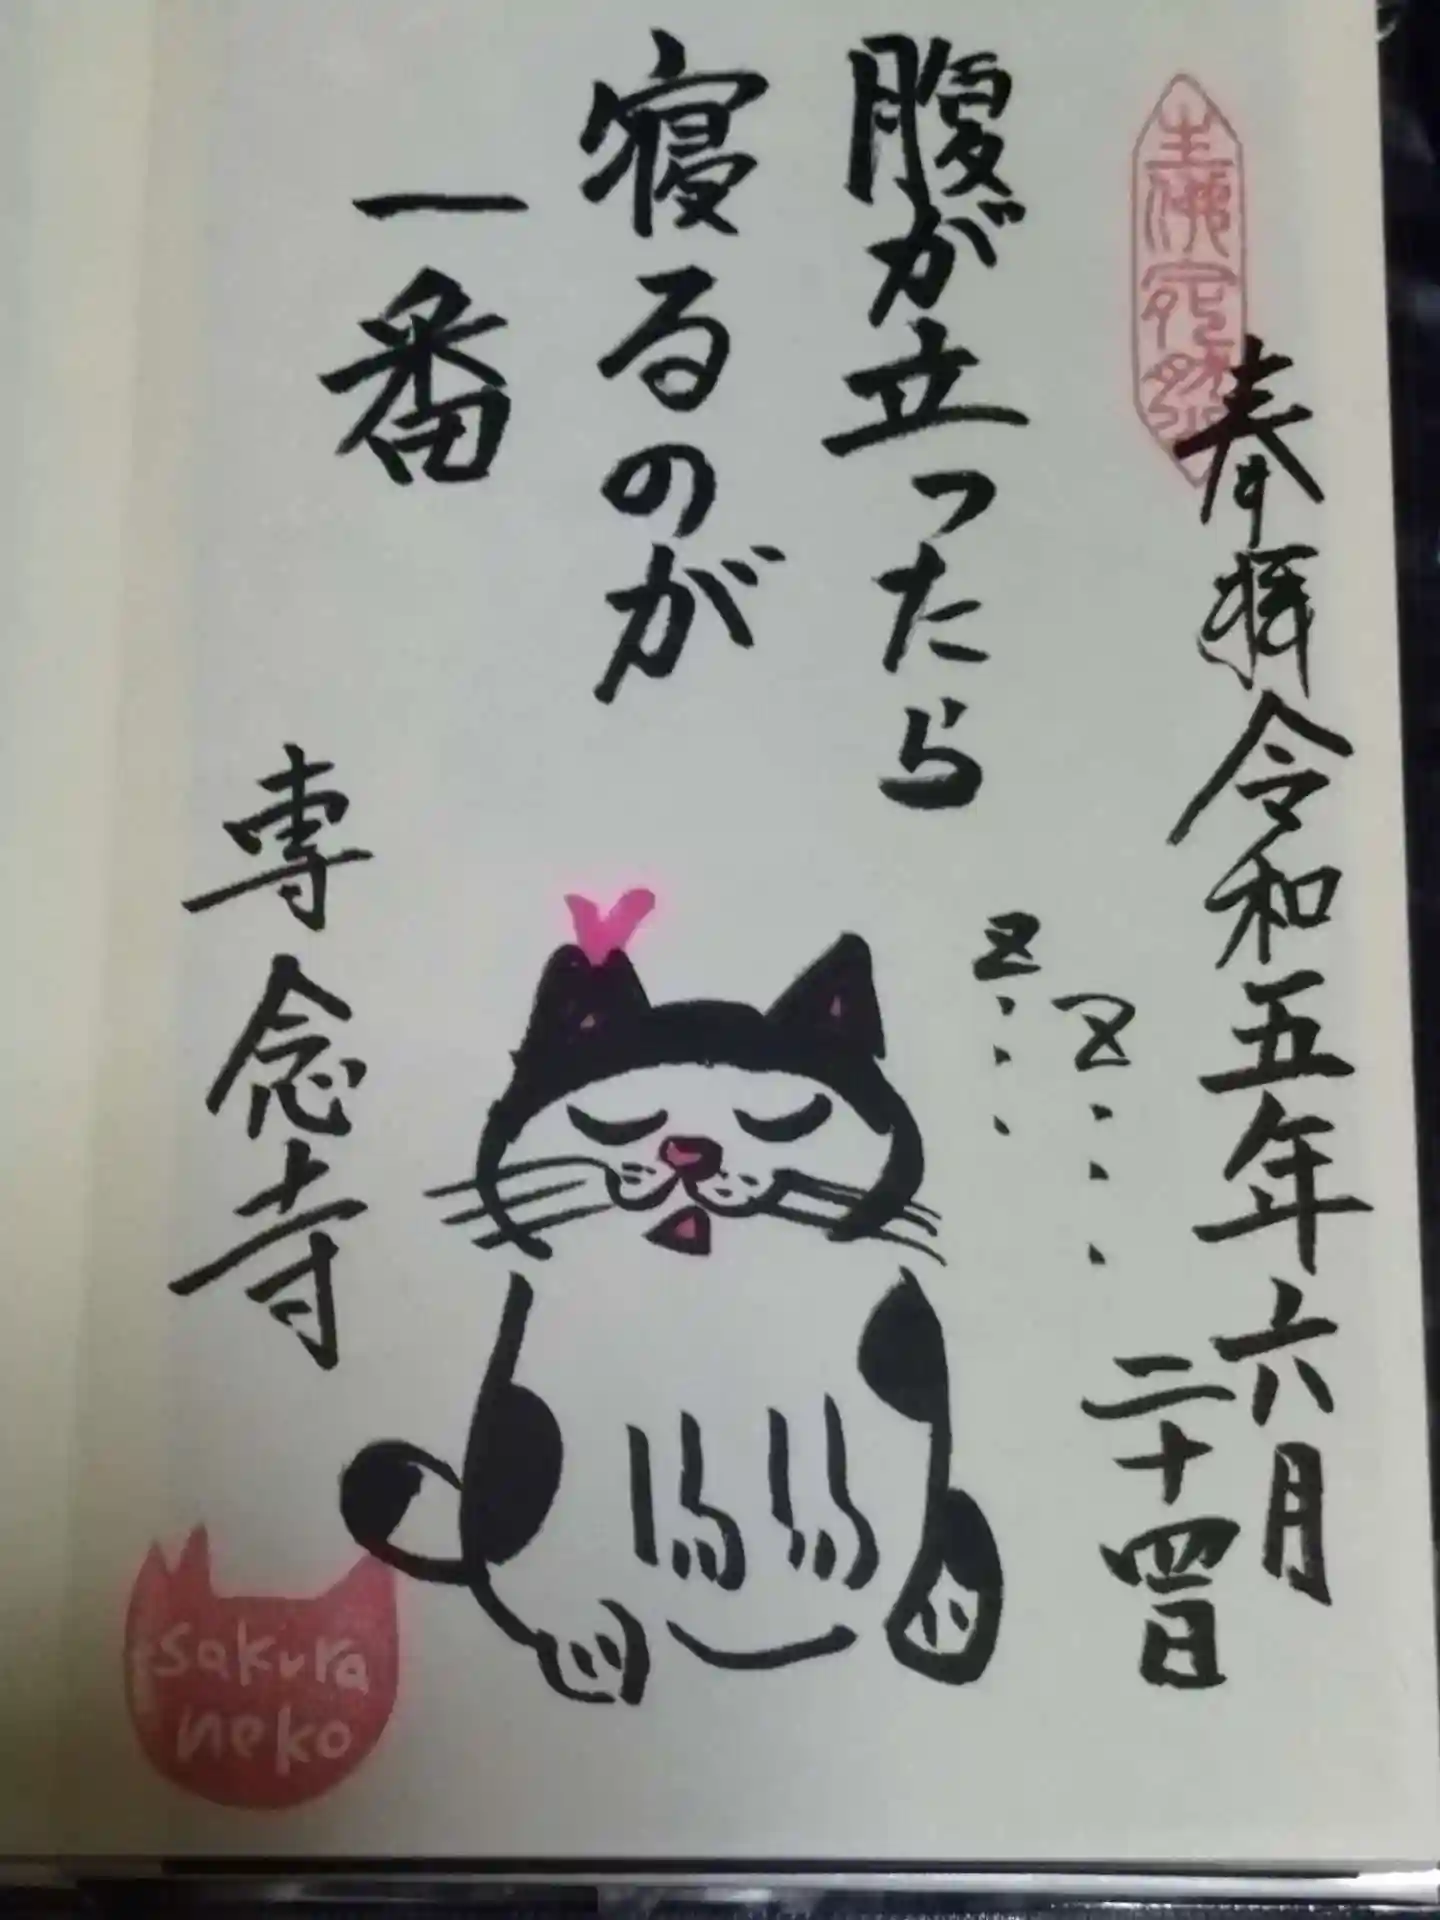 奉拝 令和五年六月
二十四日
腹が立ったら
寝るのが
一番
専念寺
z...
z...
sakura
neko